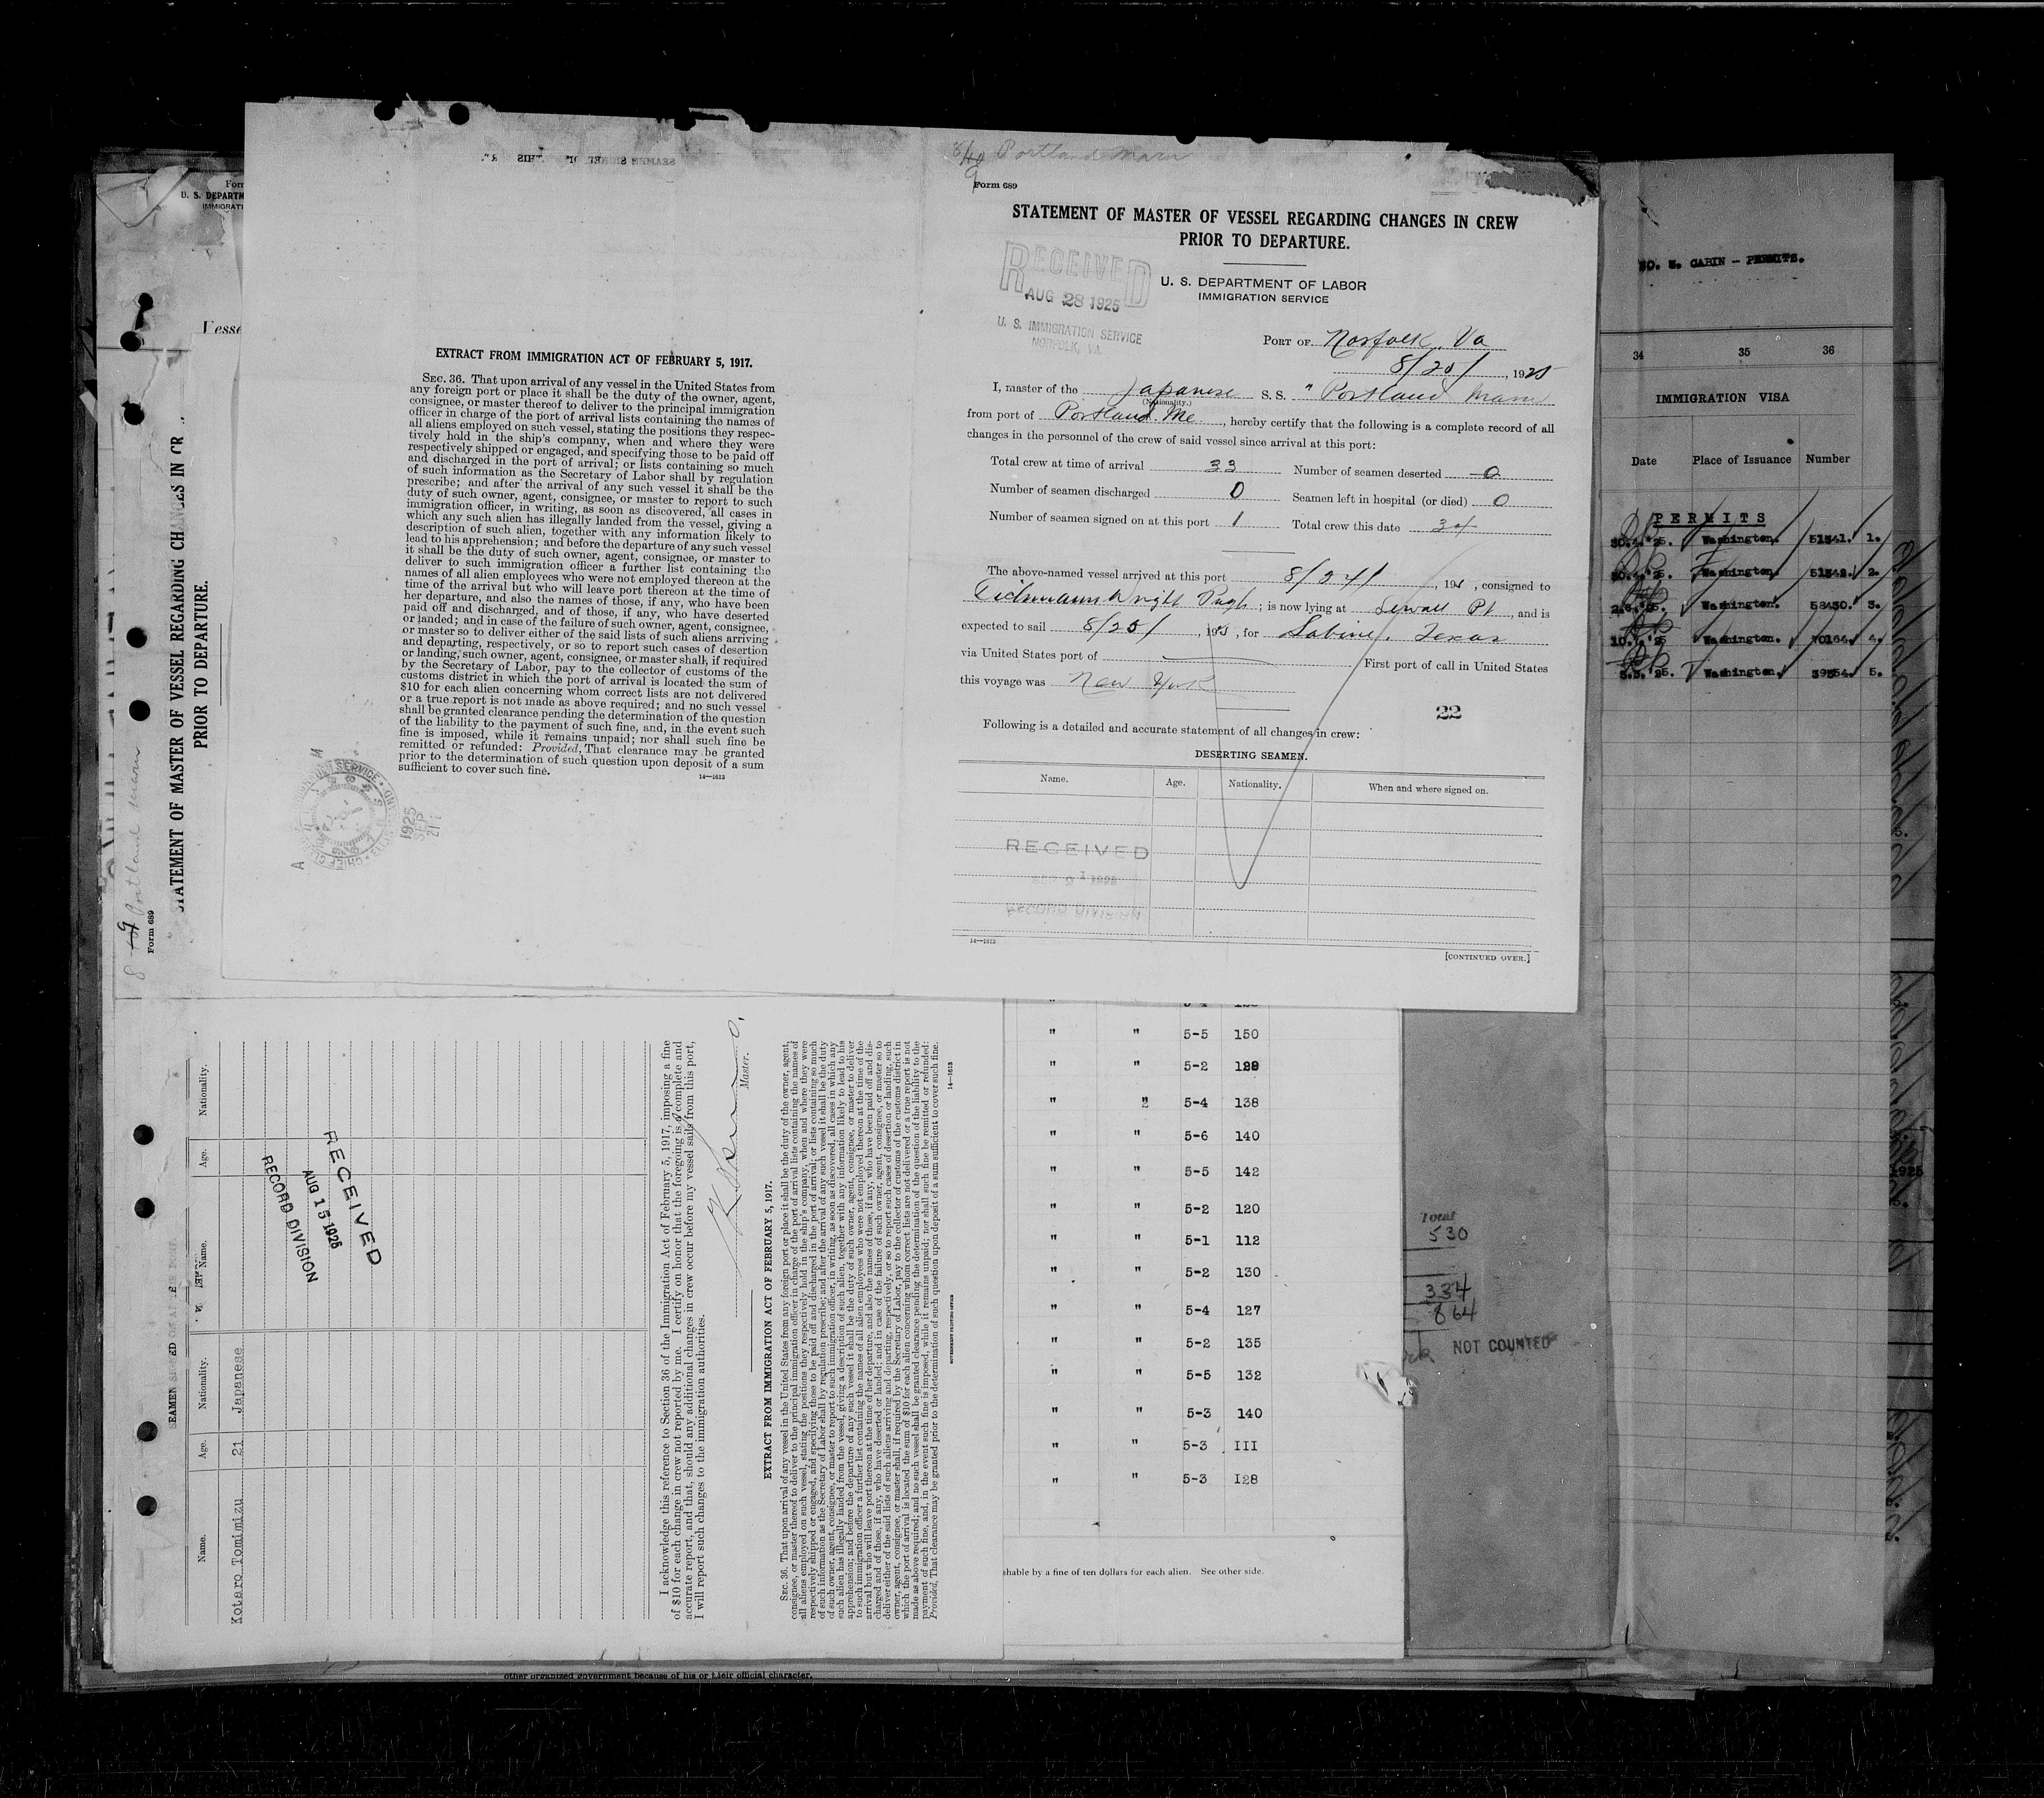 8/49 Portland Maru
Form 689
STATEMENT OF MASTER OF VESSEL REGARDING CHANGES IN CREW
PRIOR TO DEPARTURE.
RECEIVED
AUG 28 1925
U. S. IMMIGRATION SERVICE
NORFOLK, VA.
U. S. DEPARTMENT OF LABOR
IMMIGRATION SERVICE
PORT OF Norfolk, Va
8/25/, 1925
I, master of the Japanese S. S. " Portland Maru
(Nationality.)
from port of Portland. Me, hereby certify that the following is a complete record of all
changes in the personnel of the crew of said vessel since arrival at this port:
Total crew at time of arrival 33 Number of seamen deserted 0
Number of seamen discharged 0 Seamen left in hospital (or died) 0
Number of seamen signed on at this port 1 Total crew this date 34
The above-named vessel arrived at this port 8/24/, 192, consigned to
Wright Pugh; is now lying at Sewall Pt, and is
expected to sail 8/25/, 1925, for Sabine. Texas
via United States port of First port of call in United States
this voyage was New York
22
Following is a detailed and accurate statement of all changes in crew:
DESERTING SEAMEN.
Name. Age. Nationality. When and where signed on.
RECEIVED
SEP 21 1925
RECORD DIVISION
14—1613
[CONTINUED OVER.]
EXTRACT FROM IMMIGRATION ACT OF FEBRUARY 5, 1917.
SEC. 36. That upon arrival of any vessel in the United States from
any foreign port or place it shall be the duty of the owner, agent,
consignee, or master thereof to deliver to the principal immigration
officer in charge of the port of arrival lists containing the names of
all aliens employed on such vessel, stating the positions they respec-
tively hold in the ship's company, when and where they were
respectively shipped or engaged, and specifying those to be paid off
and discharged in the port of arrival; or lists containing so much
of such information as the Secretary of Labor shall by regulation
prescribe; and after the arrival of any such vessel it shall be the
duty of such owner, agent, consignee, or master to report to such
immigration officer, in writing, as soon as discovered, all cases in
which any such alien has illegally landed from the vessel, giving a
description of such alien, together with any information likely to
lead to his apprehension; and before the departure of any such vessel
it shall be the duty of such owner, agent, consignee, or master to
deliver to such immigration officer a further list containing the
names of all alien employees who were not employed thereon at the
time of the arrival but who will leave port thereon at the time of
her departure, and also the names of those, if any, who have been
paid off and discharged, and of those, if any, who have deserted
or landed; and in case of the failure of such owner, agent, consignee,
or master so to deliver either of the said lists of such aliens arriving
and departing, respectively, or so to report such cases of desertion
or landing, such owner, agent, consignee, or master shall, if required
by the Secretary of Labor, pay to the collector of customs of the
customs district in which the port of arrival is located the sum of
$10 for each alien concerning whom correct lists are not delivered
or a true report is not made as above required; and no such vessel
shall be granted clearance pending the determination of the question
of the liability to the payment of such fine, and, in the event such
fine is imposed, while it remains unpaid; nor shall such fine be
remitted or refunded: Provided, That clearance may be granted
prior to the determination of such question upon deposit of a sum
sufficient to cover such fine.
14—1613
1925
SEP
21
Form
U. S. DEPARTM
IMMIGRATI
Vesse
8 49 Portland Maru
Form 689
STATEMENT OF MASTER OF VESSEL REGARDING CHANGES IN CR
PRIOR TO DEPARTURE.
Name. Age. Nationality. Name. Age. Nationality.
Kotaro Tomimizu 21 Japanese
RECEIVED
AUG 15 1925
RECORD DIVISION
I acknowledge this reference to Section 36 of the Immigration Act of February 5, 1917, imposing a fine
of $10 for each change in crew not reported by me. I certify on honor that the foregoing is a complete and
accurate report, and that, should any additional changes in crew occur before my vessel sails from this port,
I will report such changes to the immigration authorities.
Master.
EXTRACT FROM IMMIGRATION ACT OF FEBRUARY 5, 1917.
SEC. 36. That upon arrival of any vessel in the United States from any foreign port or place it shall be the duty of the owner, agent,
consignee, or master thereof to deliver to the principal immigration officer in charge of the port of arrival lists containing the names of
all aliens employed on such vessel, stating the positions they respectively hold in the ship's company, when and where they were
respectively shipped or engaged, and specifying those to be paid off and discharged in the port of arrival; or lists containing so much
of such information as the Secretary of Labor shall by regulation prescribe; and after the arrival of any such vessel it shall be the duty
of such owner, agent, consignee, or master to report to such immigration officer, in writing, as soon as discovered, all cases in which any
such alien has illegally landed from the vessel, giving a description of such alien, together with any information likely to lead to his
apprehension; and before the departure of any such vessel it shall be the duty of such owner, agent, consignee, or master to deliver
to such immigration officer a further list containing the names of all alien employees who were not employed thereon at the time of the
arrival but who will leave port thereon at the time of her departure, and also the names of those, if any, who have been paid off and dis-
charged and of those, if any, who have deserted or landed; and in case of the failure of such owner, agent, consignee, or master so to
deliver either of the said lists of such aliens arriving and departing, respectively, or so to report such cases of desertion or landing, such
owner, agent, consignee, or master shall, if required by the Secretary of Labor, pay to the collector of customs of the customs district in
which the port of arrival is located the sum of $10 for each alien concerning whom correct lists are not delivered or a true report is not
made as above required; and no such vessel shall be granted clearance pending the determination of the question of the liability to the
payment of such fine, and, in the event such fine is imposed, while it remains unpaid; nor shall such fine be remitted or refunded:
Provided, That clearance may be granted prior to the determination of such question upon deposit of a sum sufficient to cover such fine.
14—1613
GOVERNMENT PRINTING OFFICE
" " 5-5 150
" " 5-2 129
" " 5-4 138
" " 5-6 140
" " 5-5 142
" " 5-2 120
" " 5-1 112
" " 5-2 130
" " 5-4 127
" " 5-2 135
" " 5-5 132
" " 5-3 140
" " 5-3 III
" " 5-3 I28
shable by a fine of ten dollars for each alien. See other side.
other organized government because of his or their official character.
Total
530
334
864
NOT COUNTED
CABIN - PERMITS.
34 35 36
IMMIGRATION VISA
Date Place of Issuance Number
PERMITS
30.4.'25. Washington. 51341. 1.
30.4.'25. Washington. 51342. 2.
2.6.'25. Washington. 58430. 3.
Washington. 70164. 4.
5.5.'25. Washington. 39554. 5.
1925